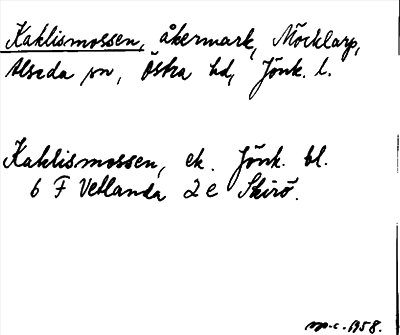 Kaklismossen, åkermark, Möcklarp,
Alseda sn, Östra hd, Jönk. l.
Kaklismossen, ek. Jönk. bl.
6 F Vetlanda 2 e Skirö.
m.c. 1958.